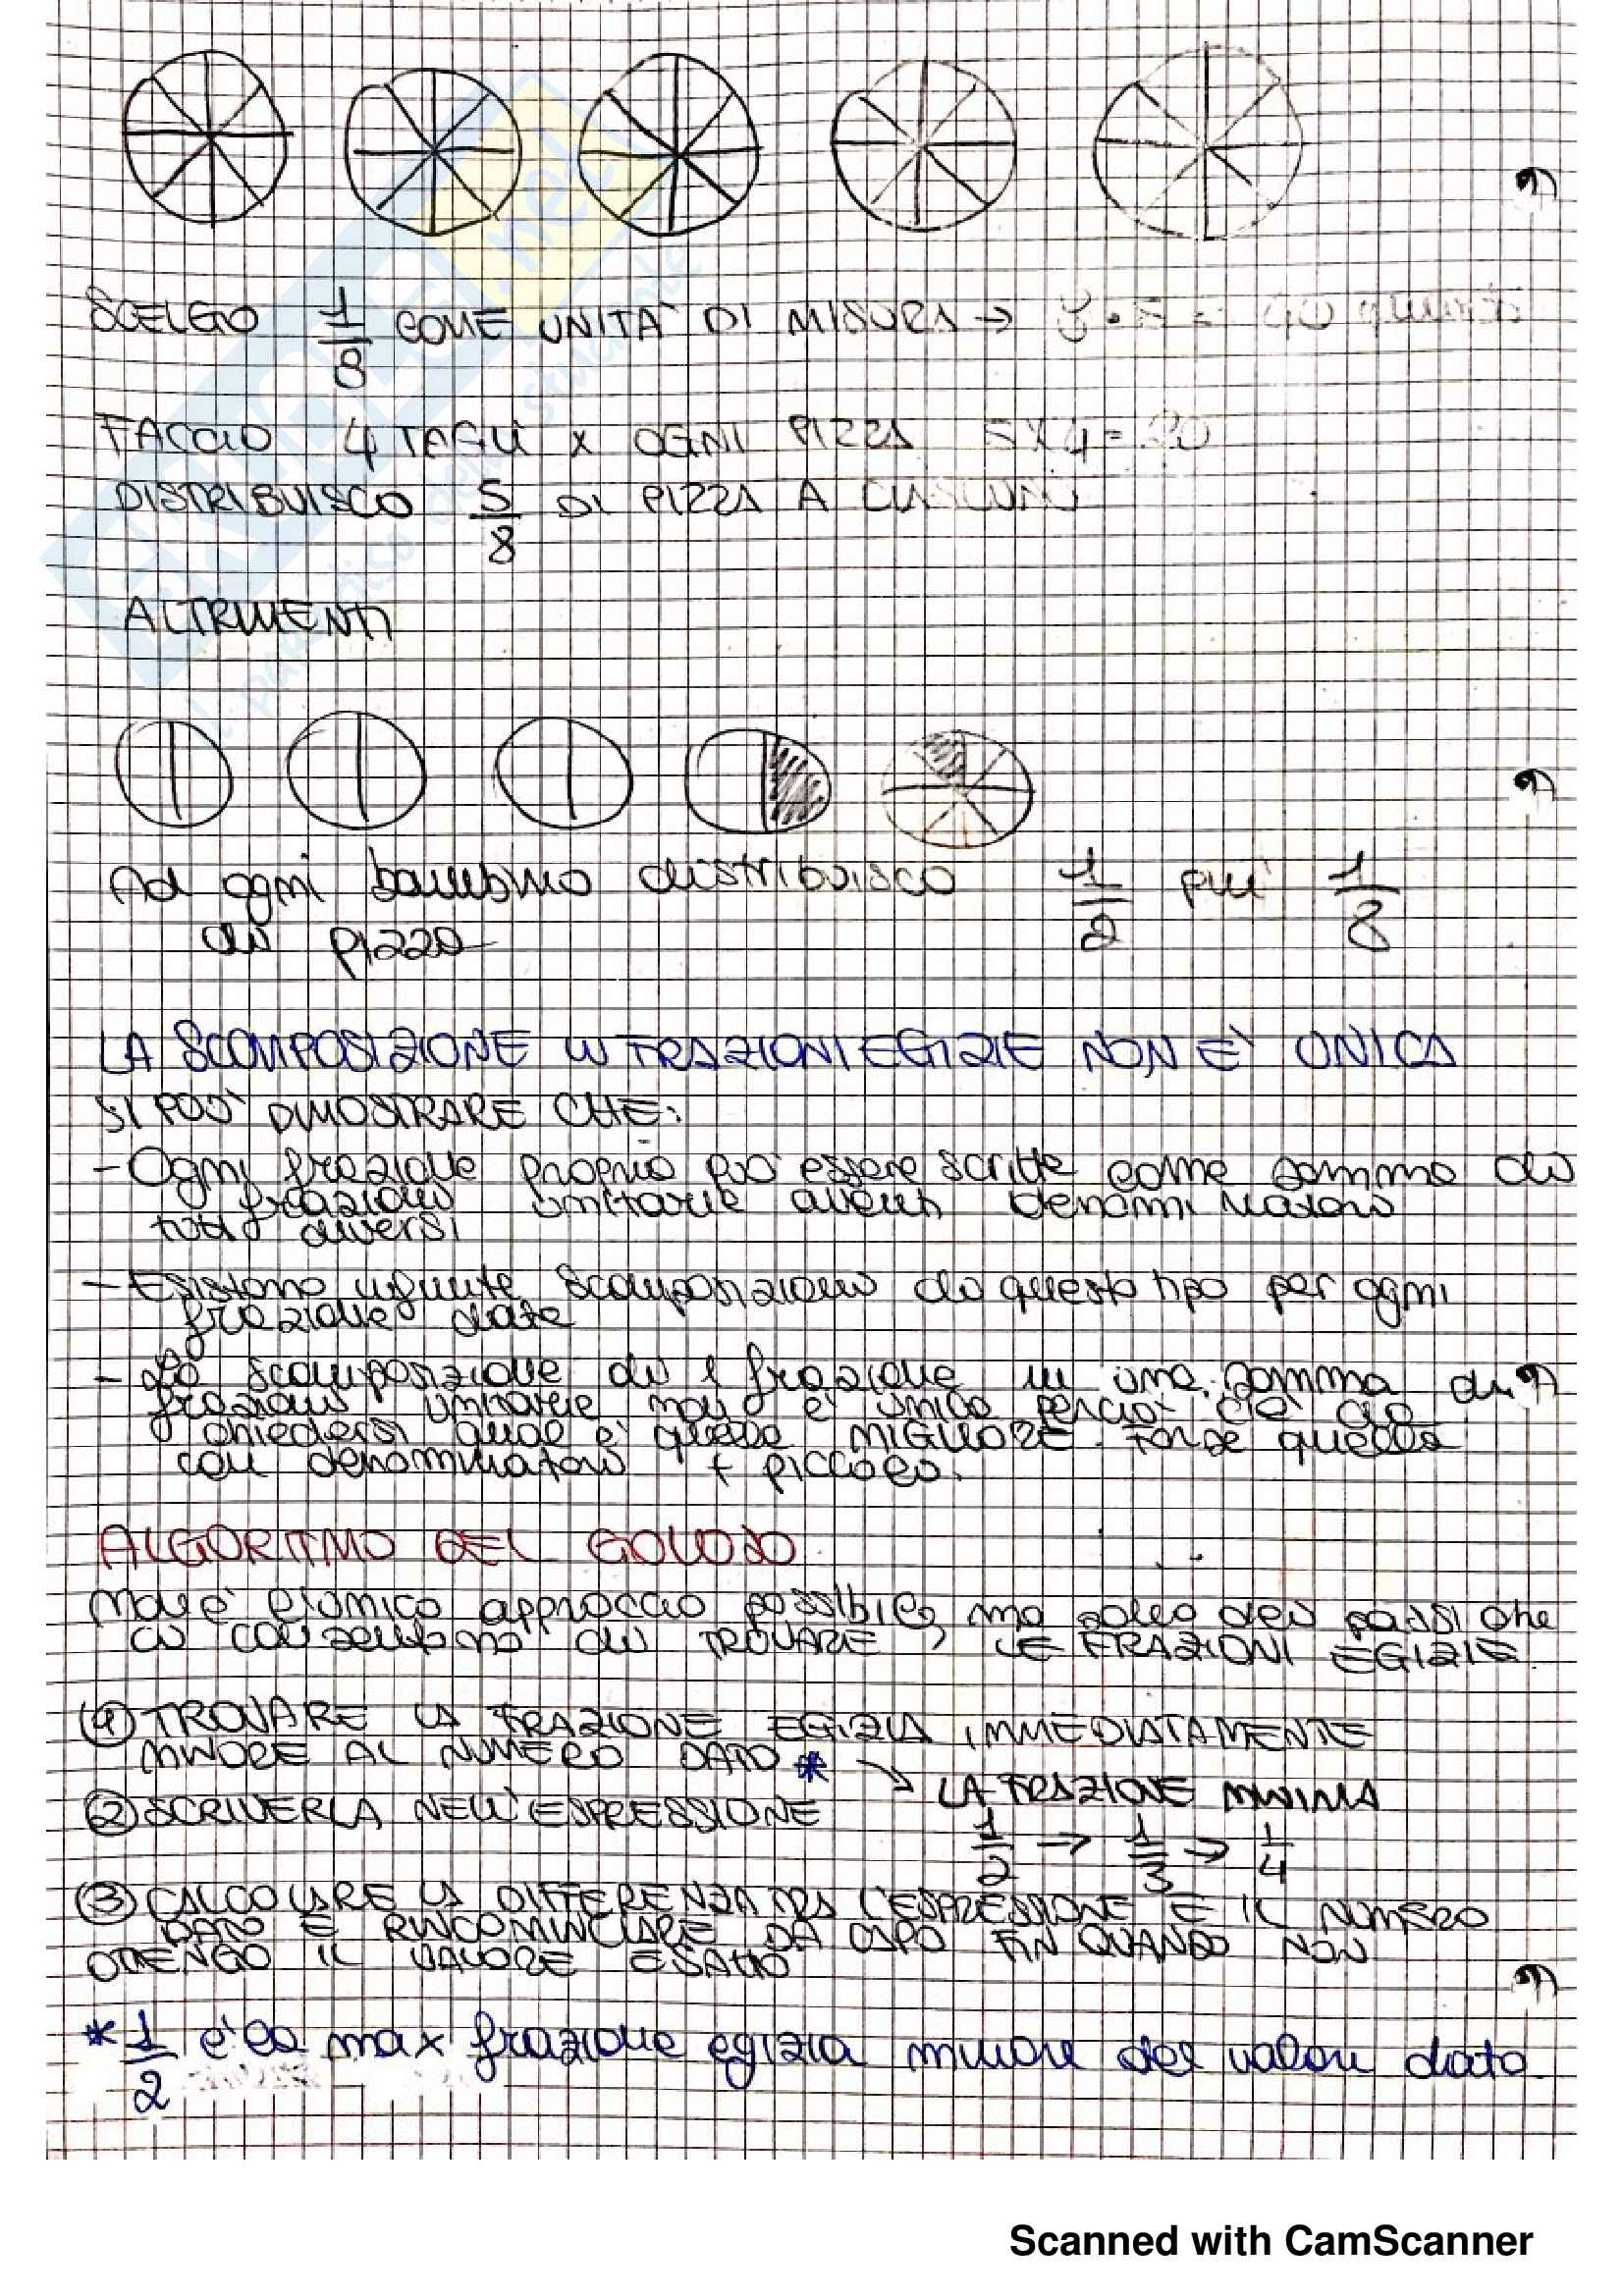 SCELGO 1/8 COME UNITA' DI MISURA → 8 • 5 = 40
FACCIO 4 TAGLI x OGNI PIZZA 5x4=20
DISTRIBUISCO 5/8 DI PIZZA A CIASCUNO
ALTRIMENTI
Ad ogni bambino distribuisco 1/2 più 1/8
di pizza
LA SCOMPOSIZIONE IN FRAZIONI EGIZIE NON E' UNICA
SI PUO' DIMOSTRARE CHE:
- Ogni frazione propria può essere scritta come somma di
frazioni unitarie aventi denominatori
tutti diversi
- Esistono infinite scomposizioni di questo tipo per ogni
frazione data
- La scomposizione di 1 frazione in una somma di
frazioni unitarie non è unica perciò c'è da
chiedersi qual è quella MIGLIORE. Forse quella
con denominatori + piccolo.
ALGORITMO DEL GOLOSO
Non è l'unico approccio possibile, ma dei passi che
ci consentono di TROVARE LE FRAZIONI EGIZIE
① TROVARE LA FRAZIONE EGIZIA IMMEDIATAMENTE
MINORE AL NUMERO DATO *
→ LA FRAZIONE MINIMA
② SCRIVERLA NELL'ESPRESSIONE
1/2 → 1/3 → 1/4
③ CALCOLARE LA DIFFERENZA TRA L'ESPRESSIONE E IL NUMERO
DATO E RINCOMINCIARE DA CAPO FIN QUANDO NON
OTTENGO IL VALORE ESATTO
* 1/2 è la max frazione egizia minore del valore dato.
Scanned with CamScanner